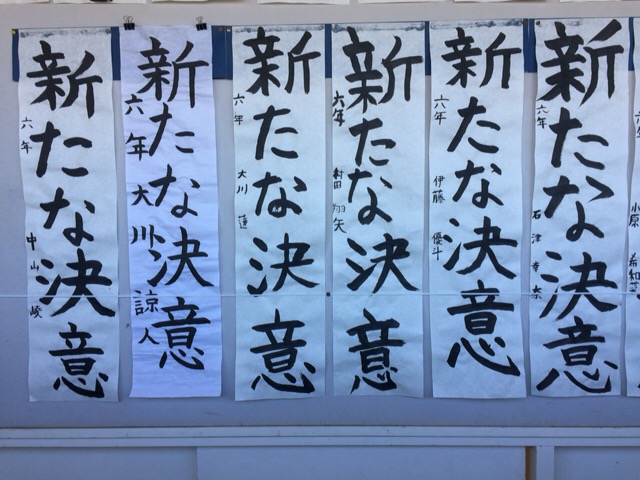 新たな決意
六年
中山
新たな決意
六年
大川諒人
新たな決意
六年
大川蓮
新たな決意
六年
村田翔矢
新たな決意
六年
伊藤優斗
新たな決意
六年
石津幸奈
小原